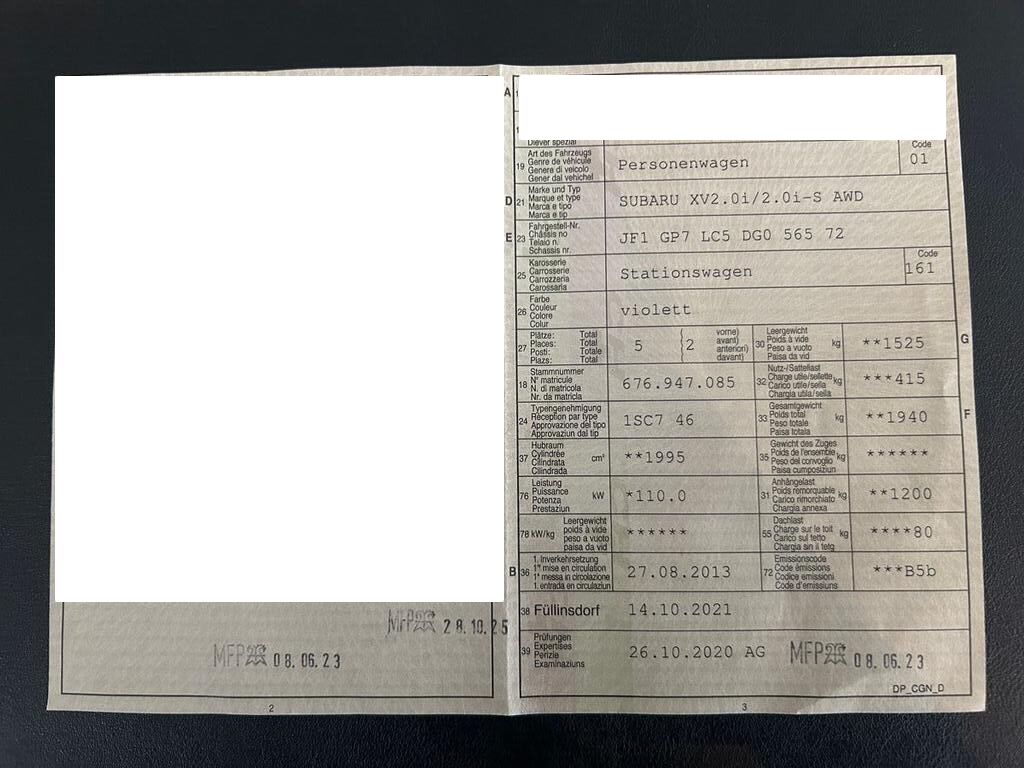 MFP 28.10.25
MFP 08.06.23
2
A
Diever spezial
19 Art des Fahrzeugs
Genre de véhicule
Genere di veicolo
Gener dal vehichel
Personenwagen
Code
01
D 21 Marke und Typ
Marque et type
Marca e tipo
Marca e tip
SUBARU XV2.0i/2.0i-S AWD
E 23 Fahrgestell-Nr.
Châssis no
Telaio n.
Schassis nr.
JF1 GP7 LC5 DG0 565 72
25 Karosserie
Carrosserie
Carrozzeria
Carossaria
Stationswagen
Code
161
26 Farbe
Couleur
Colore
Colur
violett
27 Plätze: Total
Places: Total
Posti: Totale
Plazs: Total
5 2
vorne)
avant)
anteriori)
davant)
30 Leergewicht
Poids à vide
Peso a vuoto
Paisa da vid
kg
**1525
G
18 Stammnummer
N° matricule
N. di matricola
Nr. da matricla
676.947.085
32 Nutz-/Sattellast
Charge utile/sellette
Carico utile/sella
Chargia utila/sella
kg
***415
24 Typengenehmigung
Réception par type
Approvazione del tipo
Approvaziun dal tip
1SC7 46
33 Gesamtgewicht
Poids total
Peso totale
Paisa totala
kg
**1940
F
37 Hubraum
Cylindrée
Cilindrata
Cilindrada
cm³
**1995
35 Gewicht des Zuges
Poids de l'ensemble
Peso del convoglio
Paisa cumposiziun
kg
******
76 Leistung
Puissance
Potenza
Prestaziun
kW
*110.0
31 Anhängelast
Poids remorquable
Carico rimorchiato
Chargia annexa
kg
**1200
78 kW/kg
Leergewicht
poids à vide
peso a vuoto
paisa da vid
******
55 Dachlast
Charge sur le toit
Carico sul tetto
Chargia sin il tetg
kg
****80
B 36 1. Inverkehrsetzung
1re mise en circulation
1a messa in circolazione
1. entrada en circulaziun
27.08.2013
72 Emissionscode
Code émissions
Codice emissioni
Code d'emissiuns
***B5b
38 Füllinsdorf 14.10.2021
39 Prüfungen
Expertises
Perizie
Examinaziuns
26.10.2020 AG MFP 08.06.23
DP_CGN_D
3